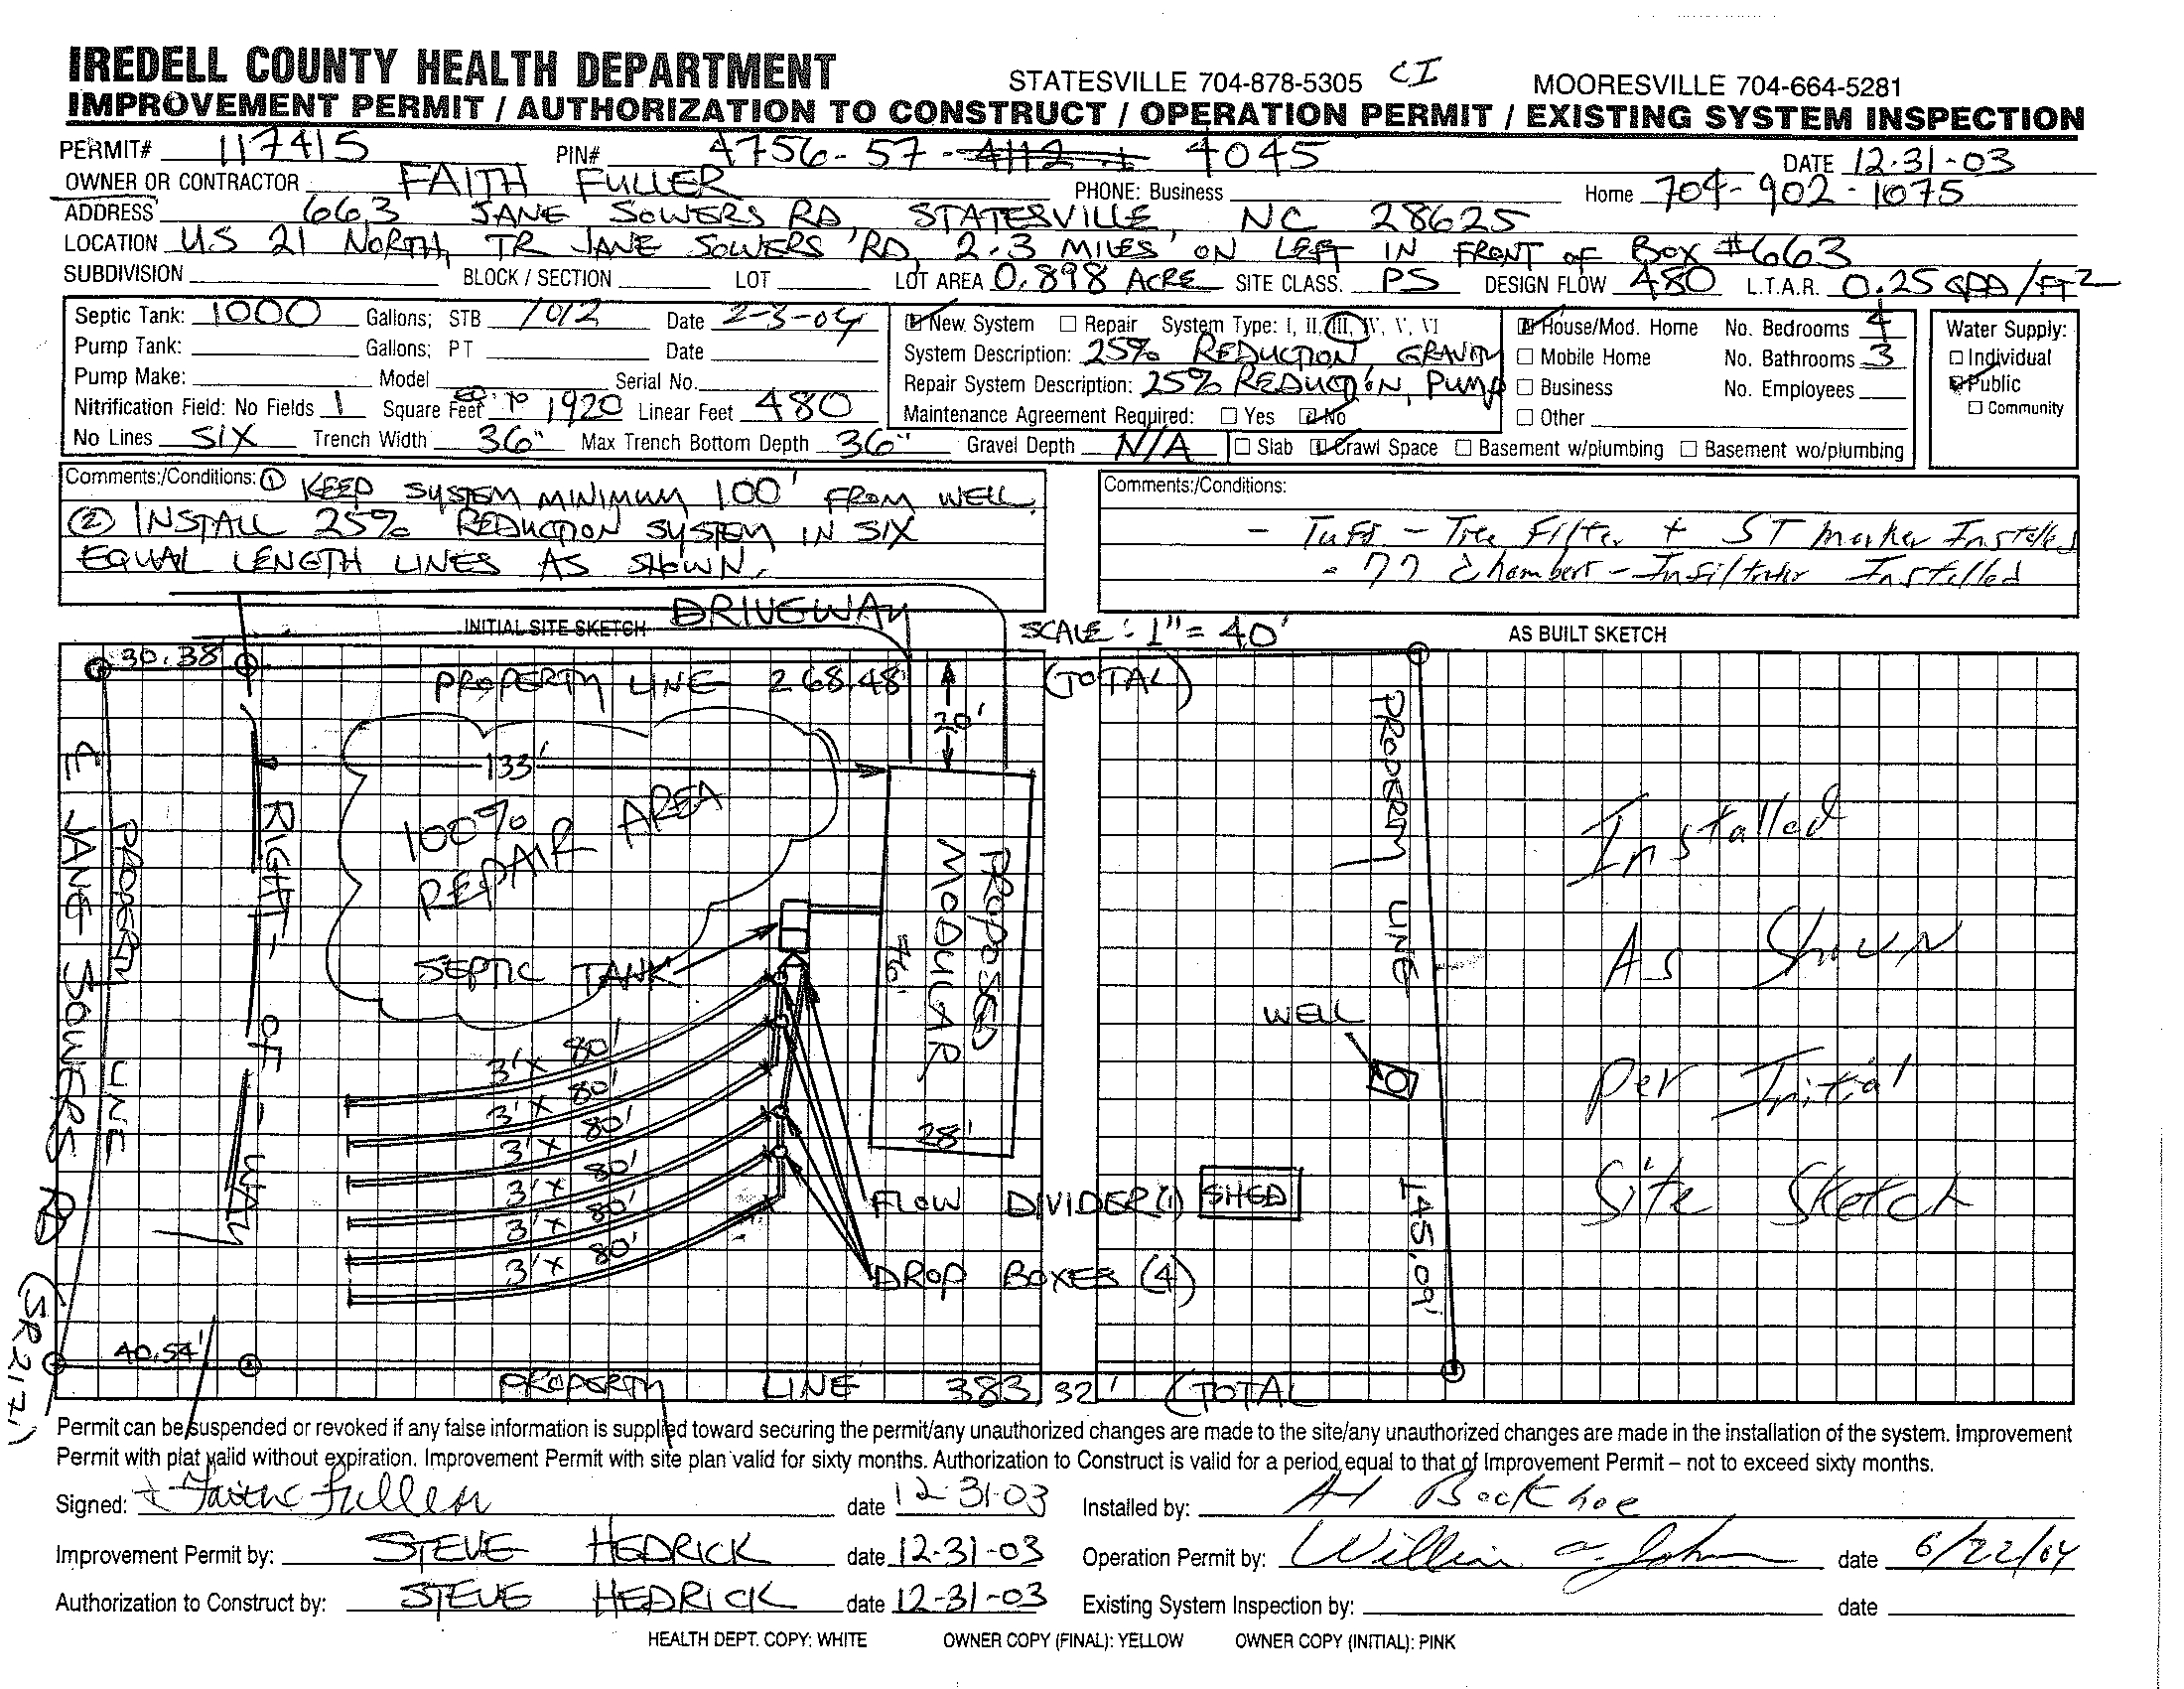 IREDELL COUNTY HEALTH DEPARTMENT STATESVILLE 704-878-5305 CI MOORESVILLE 704-664-5281
IMPROVEMENT PERMIT / AUTHORIZATION TO CONSTRUCT / OPERATION PERMIT / EXISTING SYSTEM INSPECTION
PERMIT# 117415 PIN# 4756-57-4112 4045 DATE 12-31-03
OWNER OR CONTRACTOR FAITH FULLER PHONE: Business Home 704-902-1075
ADDRESS 663 JANE SOWERS RD, STATESVILLE, NC 28625
LOCATION US 21 NORTH, TR JANE SOWERS RD, 2.3 MILES ON LEFT IN FRONT OF BOX #663
SUBDIVISION BLOCK / SECTION LOT LOT AREA 0.898 ACRE SITE CLASS. PS DESIGN FLOW 480 L.T.A.R. 0.25 GPD/FT2
Septic Tank: 1000 Gallons; STB 1012 Date 2-3-04
Pump Tank: Gallons; PT Date
Pump Make: Model Serial No.
Nitrification Field: No Fields 1 Square Feet EQ. TO 1920 Linear Feet 480
No Lines SIX Trench Width 36" Max Trench Bottom Depth 36" Gravel Depth N/A
New System Repair System Type: I, II, III, IV, V, VI
System Description: 25% REDUCTION GRAVITY
Repair System Description: 25% REDUCTION, PUMP
Maintenance Agreement Required: Yes No
House/Mod. Home No. Bedrooms 4
Mobile Home No. Bathrooms 3
Business No. Employees
Other
Slab Crawl Space Basement w/plumbing Basement wo/plumbing
Water Supply:
Individual
Public
Community
Comments:/Conditions: ① KEEP SYSTEM MINIMUM 100' FROM WELL.
② INSTALL 25% REDUCTION SYSTEM IN SIX
EQUAL LENGTH LINES AS SHOWN.
Comments:/Conditions:
- Tuf - Tite Filter + ST marker Installed
- 77 Chambers - Infiltrator Installed
DRIVEWAY
INITIAL SITE SKETCH SCALE: 1" = 40' AS BUILT SKETCH
30.38'
PROPERTY LINE 268.48' (TOTAL)
20'
133'
100%
REPAIR AREA
SEPTIC TANK
PROPOSED
MODULAR
76'
28'
RIGHT-OF-WAY
PROPERTY LINE
℄ JANE SOWERS RD (SR 2171)
3' X 80'
3' X 80'
3' X 80'
3' X 80'
3' X 80'
3' X 80'
FLOW DIVIDER (1)
DROP BOXES (4)
SHED
WELL
PROPERTY LINE 145.09'
Installed
As Shown
Per Initial
Site Sketch
40.54'
PROPERTY LINE 383.32' (TOTAL
Permit can be suspended or revoked if any false information is supplied toward securing the permit/any unauthorized changes are made to the site/any unauthorized changes are made in the installation of the system. Improvement
Permit with plat valid without expiration. Improvement Permit with site plan valid for sixty months. Authorization to Construct is valid for a period equal to that of Improvement Permit – not to exceed sixty months.
Signed: Faith Fuller date 12-31-03 Installed by: A1 Backhoe
Improvement Permit by: STEVE HEDRICK date 12-31-03 Operation Permit by: date 6/22/04
Authorization to Construct by: STEVE HEDRICK date 12-31-03 Existing System Inspection by: date
HEALTH DEPT. COPY: WHITE OWNER COPY (FINAL): YELLOW OWNER COPY (INITIAL): PINK